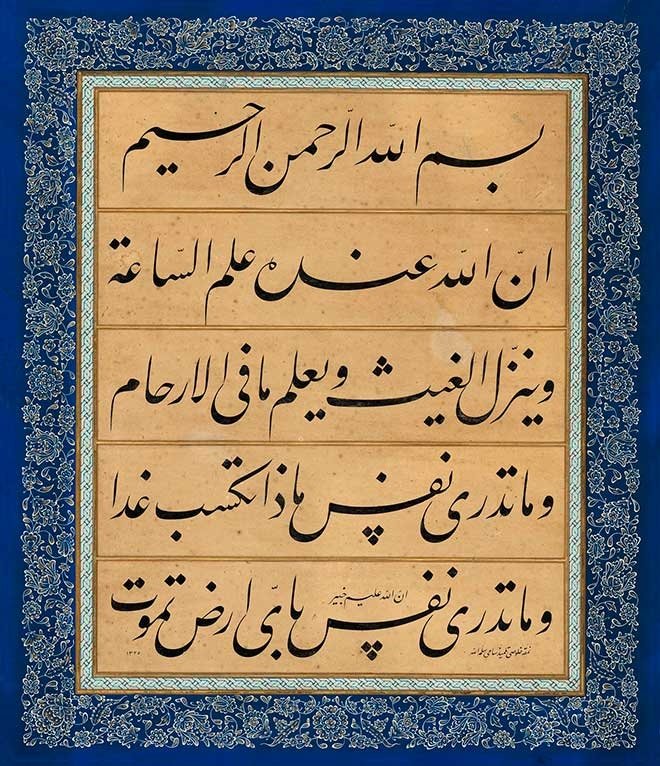 بسم الله الرّحمن الرحيم
انّ الله عنده علم السّاعة
وينزّل الغيث ويعلم مافى الارحام
وماتدرى نفس ماذا تكسب غدا
وماتدرى نفس بایّ ارض تموت
انّ الله عليم خبير
١٣٢٥